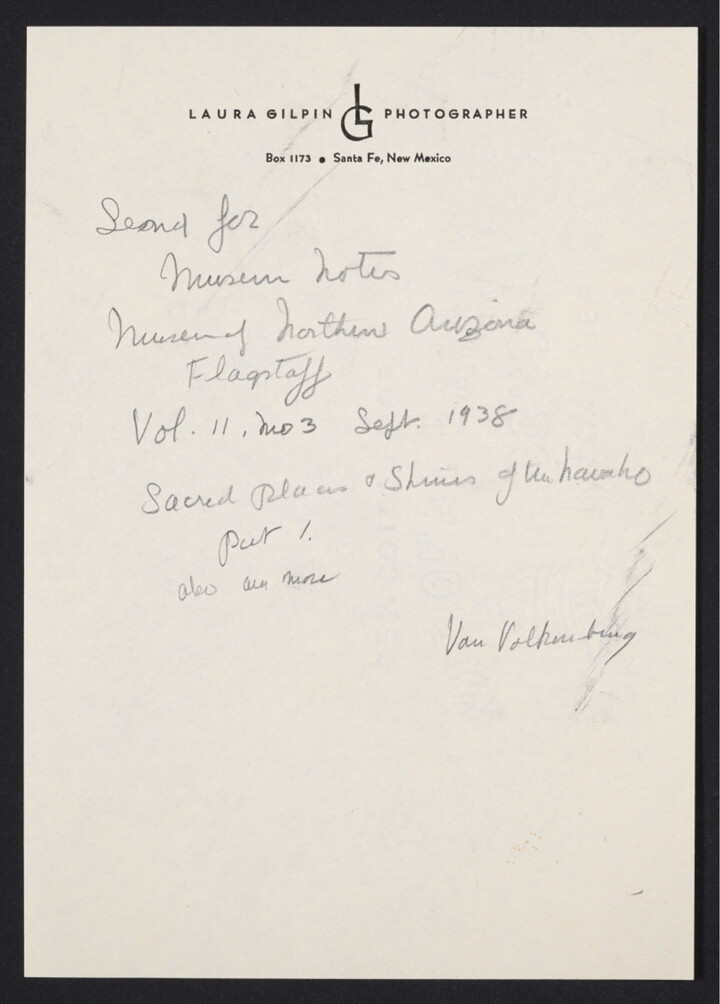 LAURA GILPIN LG PHOTOGRAPHER
Box 1173 • Santa Fe, New Mexico
Send for
Museum Notes
Museum of Northern Arizona
Flagstaff
Vol. 11, no 3 Sept. 1938
Sacred Places & Shrines of the Navaho
Part 1.
also any more
Van Valkenburg